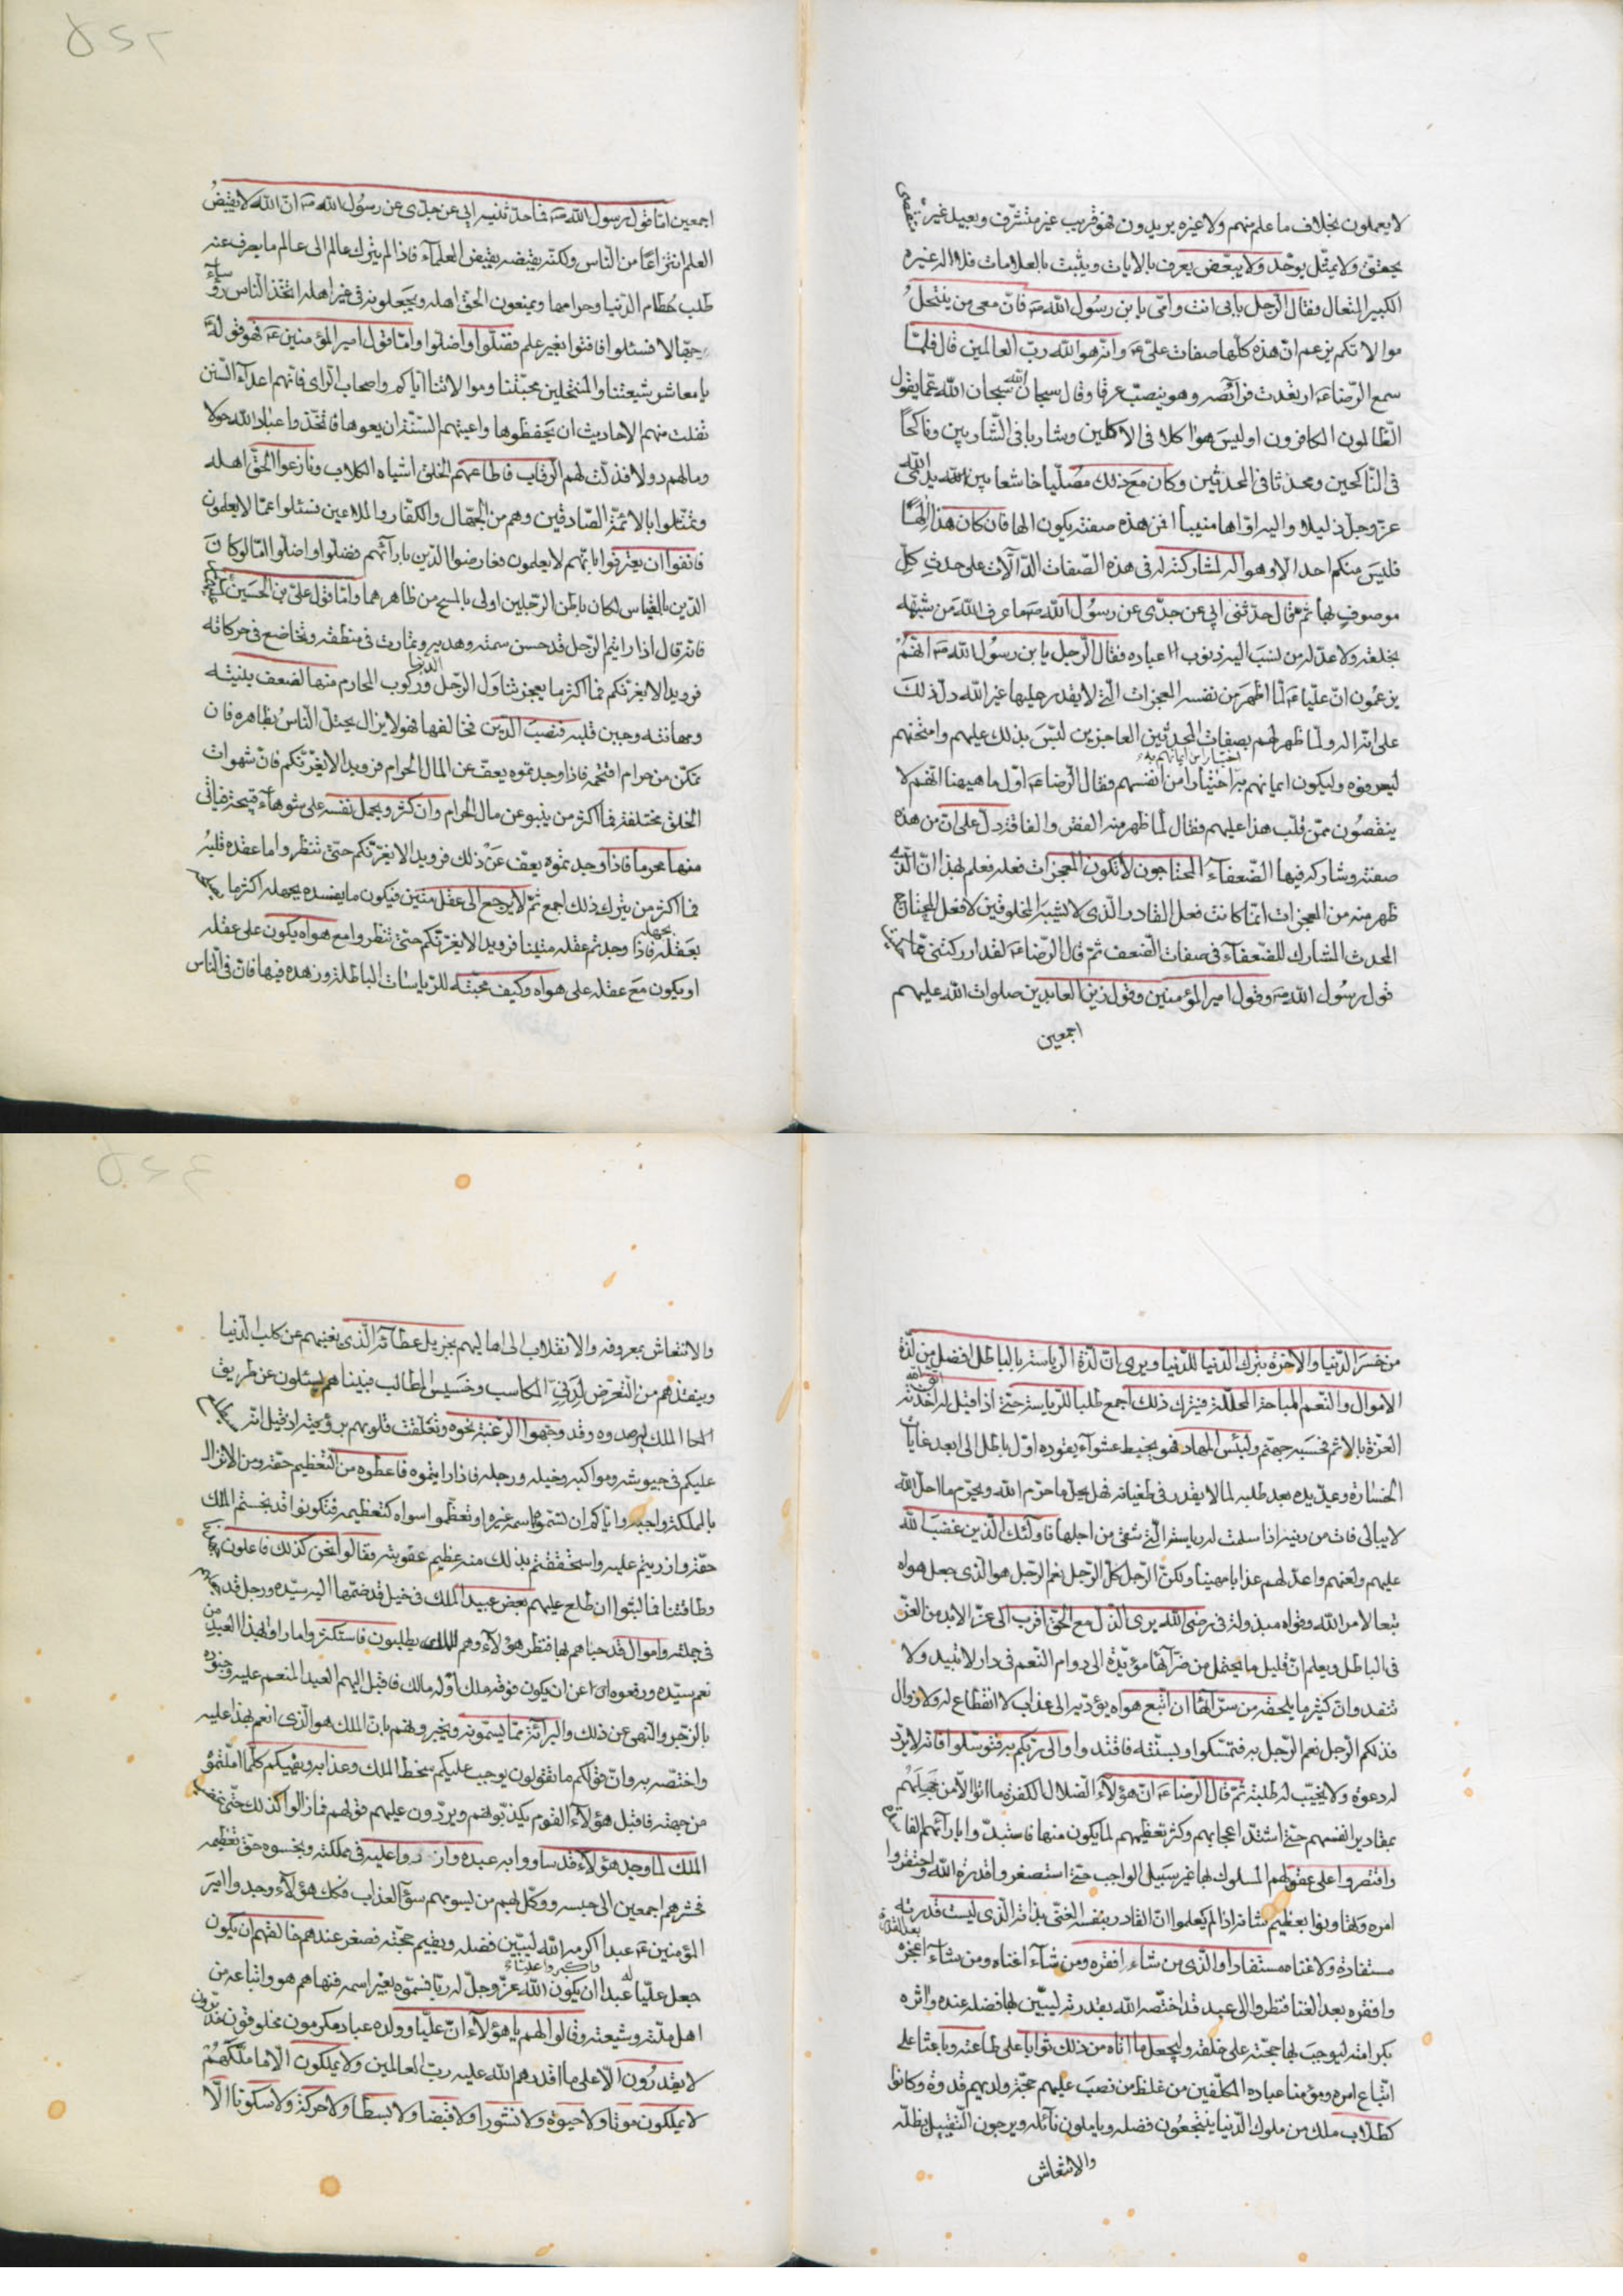 لا يعملون بخلاف ما علم منهم ولا غيره يريدون فهو قريب غير متشرف وبعيد غير
يحقق ولا يمثل يوحد ولا يبعض يعرف بالايات ويثبت بالعلامات فلا اله غيره
الكبير المتعال فقال الرجل بابى انت وامى يا بن رسول الله ص فان معى من ينتحل
موالاتكم يزعم ان هذه كلها صفات على ع وانه هو الله رب العالمين قال فلما
سمع الرضا ع ارتعدت فرائصه وهو ينصب عرقا وقال سبحان الله سبحان الله عما يقول
الظالمون الكافرون اوليس هو اكلا فى الاكلين وشاربا فى الشاربين وناكحا
فى الناكحين ومحدثا فى المحدثين وكان مع ذلك مصليا خاشعا بين يدى الله
عز وجل ذليلا واليه اواها منيبا افمن هذه صفته يكون الها فان كان هذا الها
فليس منكم احد الا وهو اله لمشاركته له فى هذه الصفات الدالات على حدث كل
موصوف بها ثم قال حدثنى ابى عن جدى عن رسول الله ص ما عرف الله من شبهه
بخلقه ولا عدله من نسب اليه ذنوب عباده فقال الرجل يا بن رسول الله ص انهم
يزعمون ان عليا ع لما اظهر من نفسه المعجزات التى لا يقدر عليها غير الله دل ذلك
على انه اله ولما ظهر لهم بصفات المحدثين العاجزين لبس بذلك عليهم وامتحنهم
ليعرفوه وليكون ايمانهم به اختيارا من انفسهم فقال الرضا ع اول ما هيهنا انهم لا
ينفصلون ممن قلب هذا عليهم فقال لما ظهر منه الفقر والفاقة دل على ان من هذه
صفته وشاركه فيها الضعفاء المحتاجون لا تكون المعجزات فعله فعلم بهذا ان الذى
ظهر منه من المعجزات انما كانت فعل القادر الذى لا يشبه المخلوقين لا فعل المحتاج
المحدث المشارك للضعفاء فى صفات الضعف ثم قال الرضا ع لقد اذكرتنى
قول رسول الله ص وقول امير المؤمنين وقول زين العابدين صلوات الله عليهم
اجمعين
اجمعين اما قول رسول الله ص فما حدثنيه ابى عن جدى عن رسول الله ص ان الله لا يقبض
العلم انتزاعا من الناس ولكنه يقبضه بقبض العلماء فاذا لم يترك عالم الى عالم ما يعرف عنه
طلب حطام الدنيا وحرامها ويمنعون الحق اهله ويجعلونه فى غير اهله اتخذ الناس رؤساء
جهالا فسئلوا فافتوا بغير علم فضلوا واضلوا واما قول امير المؤمنين ع فهو قوله
يا معاشر شيعتنا والمنتحلين محبتنا وموالاتنا اياكم واصحاب الراى فانهم اعداء السنن
تفلت منهم الاحاديث ان يحفظوها واعيتهم السنة ان يعوها فاتخذوا عباد الله خولا
ومالهم دولا فذلت لهم الرقاب فاطاعهم الخلق اشباه الكلاب ونازعوا الحق اهله
وتمثلوا بالائمة الصادقين وهم من الجهال والكفار والملاعين فسئلوا عما لا يعلمون
فانفوا ان يعترفوا بانهم لا يعلمون فعارضوا الدين بارائهم فضلوا واضلوا اما لو كان
الدين بالقياس لكان باطن الرجلين اولى بالمسح من ظاهرهما واما قول على بن الحسين
فانه قال اذا رايتم الرجل قد حسن سمته وهديه وتماوت فى منطقه وتخاضع فى حركاته
فرويدا لا يغرنكم فما اكثر ما يعجزه تناول الدنيا وركوب المحارم منها لضعف بنيته
ومهانته وجبن قلبه فنصب الدين فخا لها فهو لا يزال يختل الناس بظاهره فان
تمكن من حرام اقتحمه فاذا وجدتموه يعف عن المال الحرام فرويدا لا يغرنكم فان شهوات
الخلق مختلفة فما اكثر من ينبو عن مال الحرام وان كثر ويحمل نفسه على شوهاء قبيحة فياتى
منها محرما فاذا وجدتموه يعف عن ذلك فرويدا لا يغرنكم حتى تنظروا ما عقده قلبه
فما اكثر من يترك ذلك اجمع ثم لا يرجع الى عقل متين فيكون ما يفسده بجهله اكثر مما
بعقله فاذا وجدتم عقله متينا فرويدا لا يغرنكم حتى تنظروا مع هواه يكون على عقله
او يكون مع عقله على هواه وكيف محبته للرياسات الباطلة وزهده فيها فان فى الناس
من خسر الدنيا والاخرة بترك الدنيا للدنيا ويرى ان لذة الرياسة بالباطل افضل من لذة
الاموال والنعم المباحة المحللة فيترك ذلك اجمع طلبا للرياسة حتى اذا قيل له اتق الله اخذته
العزة بالاثم فحسبه جهنم ولبئس المهاد فهو يخبط عشواء يقوده اول باطل الى ابعد غايات
الخسارة ويمد يده بعد طلبه لما لا يقدر فى طغيانه فهل يحل ما حرم الله ويحرم ما احل الله
لا يبالى فات من دينه اذا سلمت له رياسته التى شقى من اجلها فاولئك الذين غضب الله
عليهم ولعنهم واعد لهم عذابا مهينا ولكن الرجل كل الرجل نعم الرجل هو الذى جعل هواه
تبعا لامر الله وقواه مبذولة فى رضى الله يرى الذل مع الحق اقرب الى عز الابد من العز
فى الباطل ويعلم ان قليل ما يحتمل من ضرائها مؤيدة الى دوام النعم فى دار لا تبيد ولا
تنفد وان كثير ما يلحقه من سرائها ان اتبع هواه يؤديه الى عذاب لا انقطاع له ولا زوال
فذلكم الرجل نعم الرجل به فتمسكوا وبسنته فاقتدوا والى ربكم به فتوسلوا فانه لا يرد
له دعوة ولا يخيب له طلبته ثم قال الرضا ع ان هؤلاء الضلال الكفرة ما اتوا الا من جهلهم
بمقادير انفسهم حتى اشتد اعجابهم وكثر تعظيمهم لما يكون منها فاستبدوا بارائهم الفاسدة
واقتصروا على عقولهم المسلوك بها غير سبيل الواجب حتى استصغروا قدرة الله واحتقروا
امره وتهاونوا بعظيم شانه اذ لم يعلموا ان القادر بنفسه الغنى بذاته الذى ليست قدرته
مستفادة ولا غناه مستفادا والذى من شاء افقره ومن شاء اغناه ومن شاء اعجزه بعد القدرة
وافقره بعد الغنا فنظروا الى عبد قد اختصه الله بقدرته ليبين بها فضله عنده واثره
بكرامته ليوجب بها حجته على خلقه وليجعل ما اتاه من ذلك ثوابا على طاعته وباعثا على
اتباع امره ومؤمنا عباده المكلفين من غلط من نصب عليهم حجة ولهم قدوة وكانوا
كطلاب ملك من ملوك الدنيا ينتجعون فضله ويأملون نائله ويرجون التفيؤ بظله
والانتعاش
والانتعاش بمعروفه والانقلاب الى اهاليهم بجزيل عطائه الذى يغنيهم عن كلب الدنيا
وينقذهم من التعرض لدنى المكاسب وخسيس المطالب فبينا هم يسئلون عن طريق
الملك ليرصدوه وقد وجهوا الرغبة نحوه وتعلقت قلوبهم برؤيته اذ قيل انه
عليكم فى جيوشه ومواكبه وخيله ورجله فاذا رايتموه فاعطوه من التعظيم حقه ومن الاقرار
بالمملكة واجبه واياكم ان تسموا باسمه غيره او تعظموا سواه كتعظيمه فتكونوا قد بخستم الملك
حقه وازريتم عليه واستحققتم بذلك منه عظيم عقوبته فقالوا نحن كذلك فاعلون
وطاقتنا فما لبثوا ان طلع عليهم بعض عبيد الملك فى خيل قد ضمها اليه سيده ورجل قد
فى جملته واموال قد حباهم بها فنظر هؤلاء وهم يطلبون فاستكثروا ما راوا بهذا العبد من
نعم سيده ورفعوه عن ان يكون فوقه ملك او له مالك فاقبل اليهم العبد المنعم عليه وجنوده
بالزجر والنهى عن ذلك والبرائة مما يسمونه ويخبرونهم بان الملك هو الذى انعم بهذا عليه
واختصه به وان قولكم ما تقولون يوجب عليكم سخط الملك وعذابه ويفيتكم كلما املتموه
من جهته فاقبل هؤلاء القوم يكذبونهم ويردون عليهم قولهم فما زالوا كذلك حتى
الملك لما وجد هؤلاء قد ساووا به عبده وازروا عليه فى مملكته وبخسوه حق تعظيمه
فحشرهم اجمعين الى حبسه ووكل بهم من يسومهم سوء العذاب فكك هؤلاء وجدوا امير
المؤمنين ع عبدا اكرمه الله ليبين فضله ويقيم حجته فصغر عندهم خالقهم ان يكون
جعل عليا له عبدا واكبروا عليا ان يكون الله عز وجل له ربا فسموه بغير اسمه فنهاهم هو واتباعه من
اهل ملته وشيعته وقالوا لهم يا هؤلاء ان عليا وولده عباد مكرمون مخلوقون مدبرون
لا يقدرون الا على ما اقدرهم الله عليه رب العالمين ولا يملكون الا ما ملكهم
لا يملكون موتا ولا حيوة ولا نشورا ولا قبضا ولا بسطا ولا حركة ولا سكونا الا